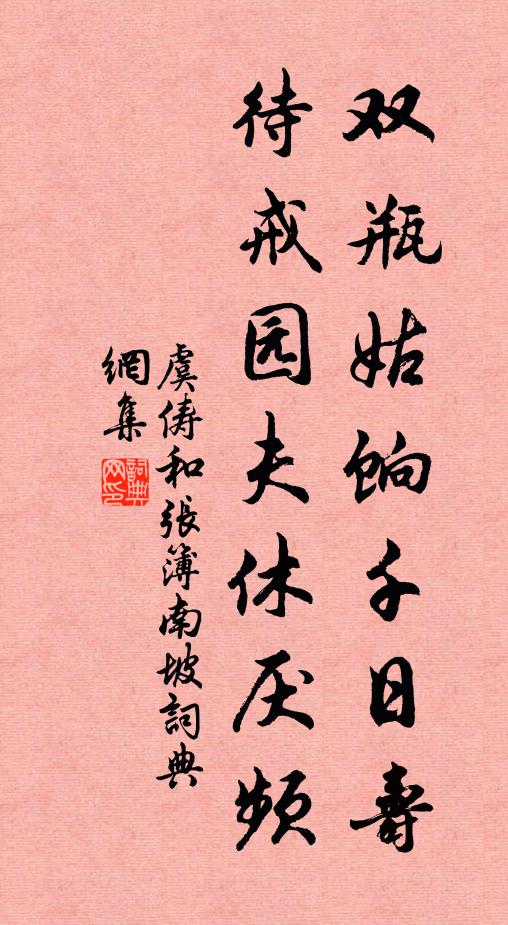 双瓶姑饷千日寿
待戒园夫休厌频
虞俦和張簿南坡詞典
網集
詞典
网印